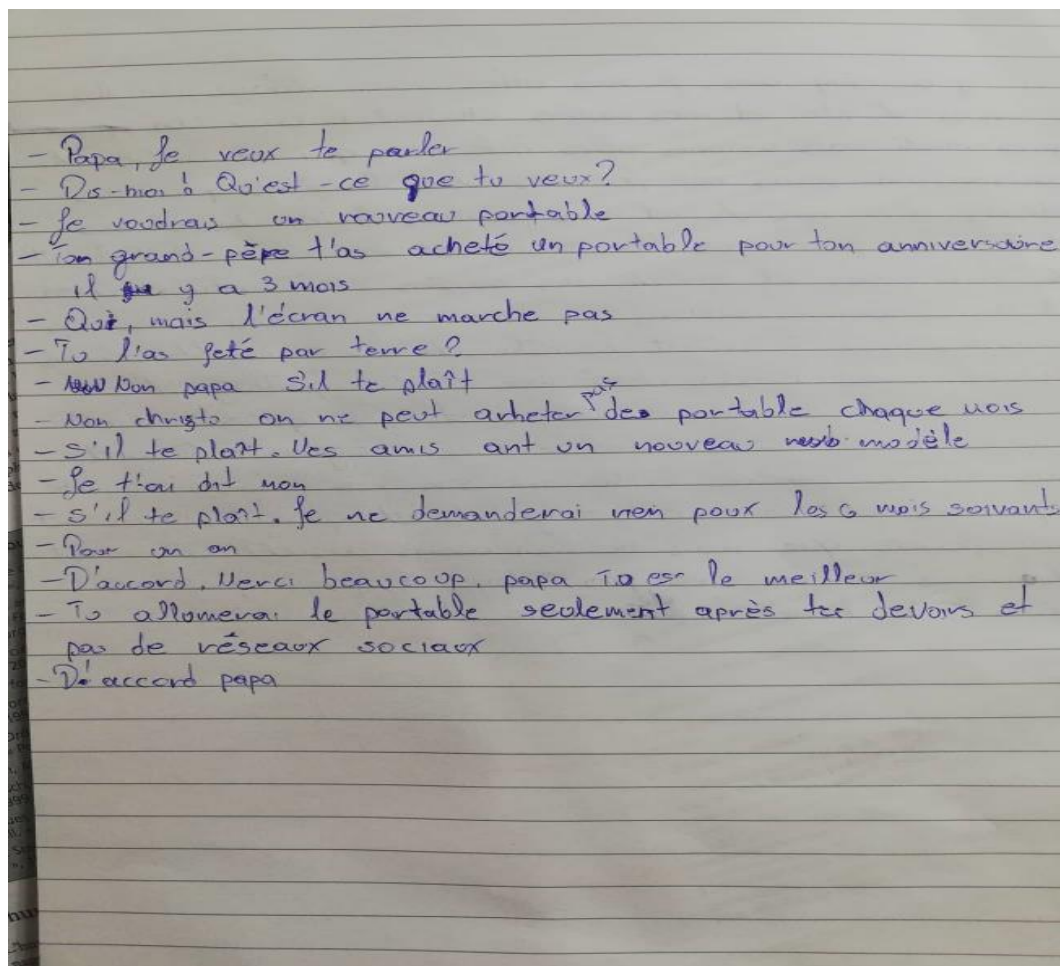 - Papa, Je veux te parler
- Dis-moi ! Qu'est-ce que tu veux?
- Je voudrais un nouveau portable
- Ton grand-père t'as acheté un portable pour ton anniversaire
il y a 3 mois
- Oui, mais l'écran ne marche pas
- Tu l'as jeté par terre ?
- Non papa S'il te plaît
- Non christo on ne peut acheter pas de portable chaque mois
- S'il te plaît. Mes amis ont un nouveau modèle
- Je t'ai dit non
- S'il te plaît. Je ne demanderai rien pour les 6 mois suivants
- Pour un an
- D'accord. Merci beaucoup. papa Tu es le meilleur
- Tu allumerai le portable seulement après tes devoirs et
pas de réseaux sociaux
- D'accord papa